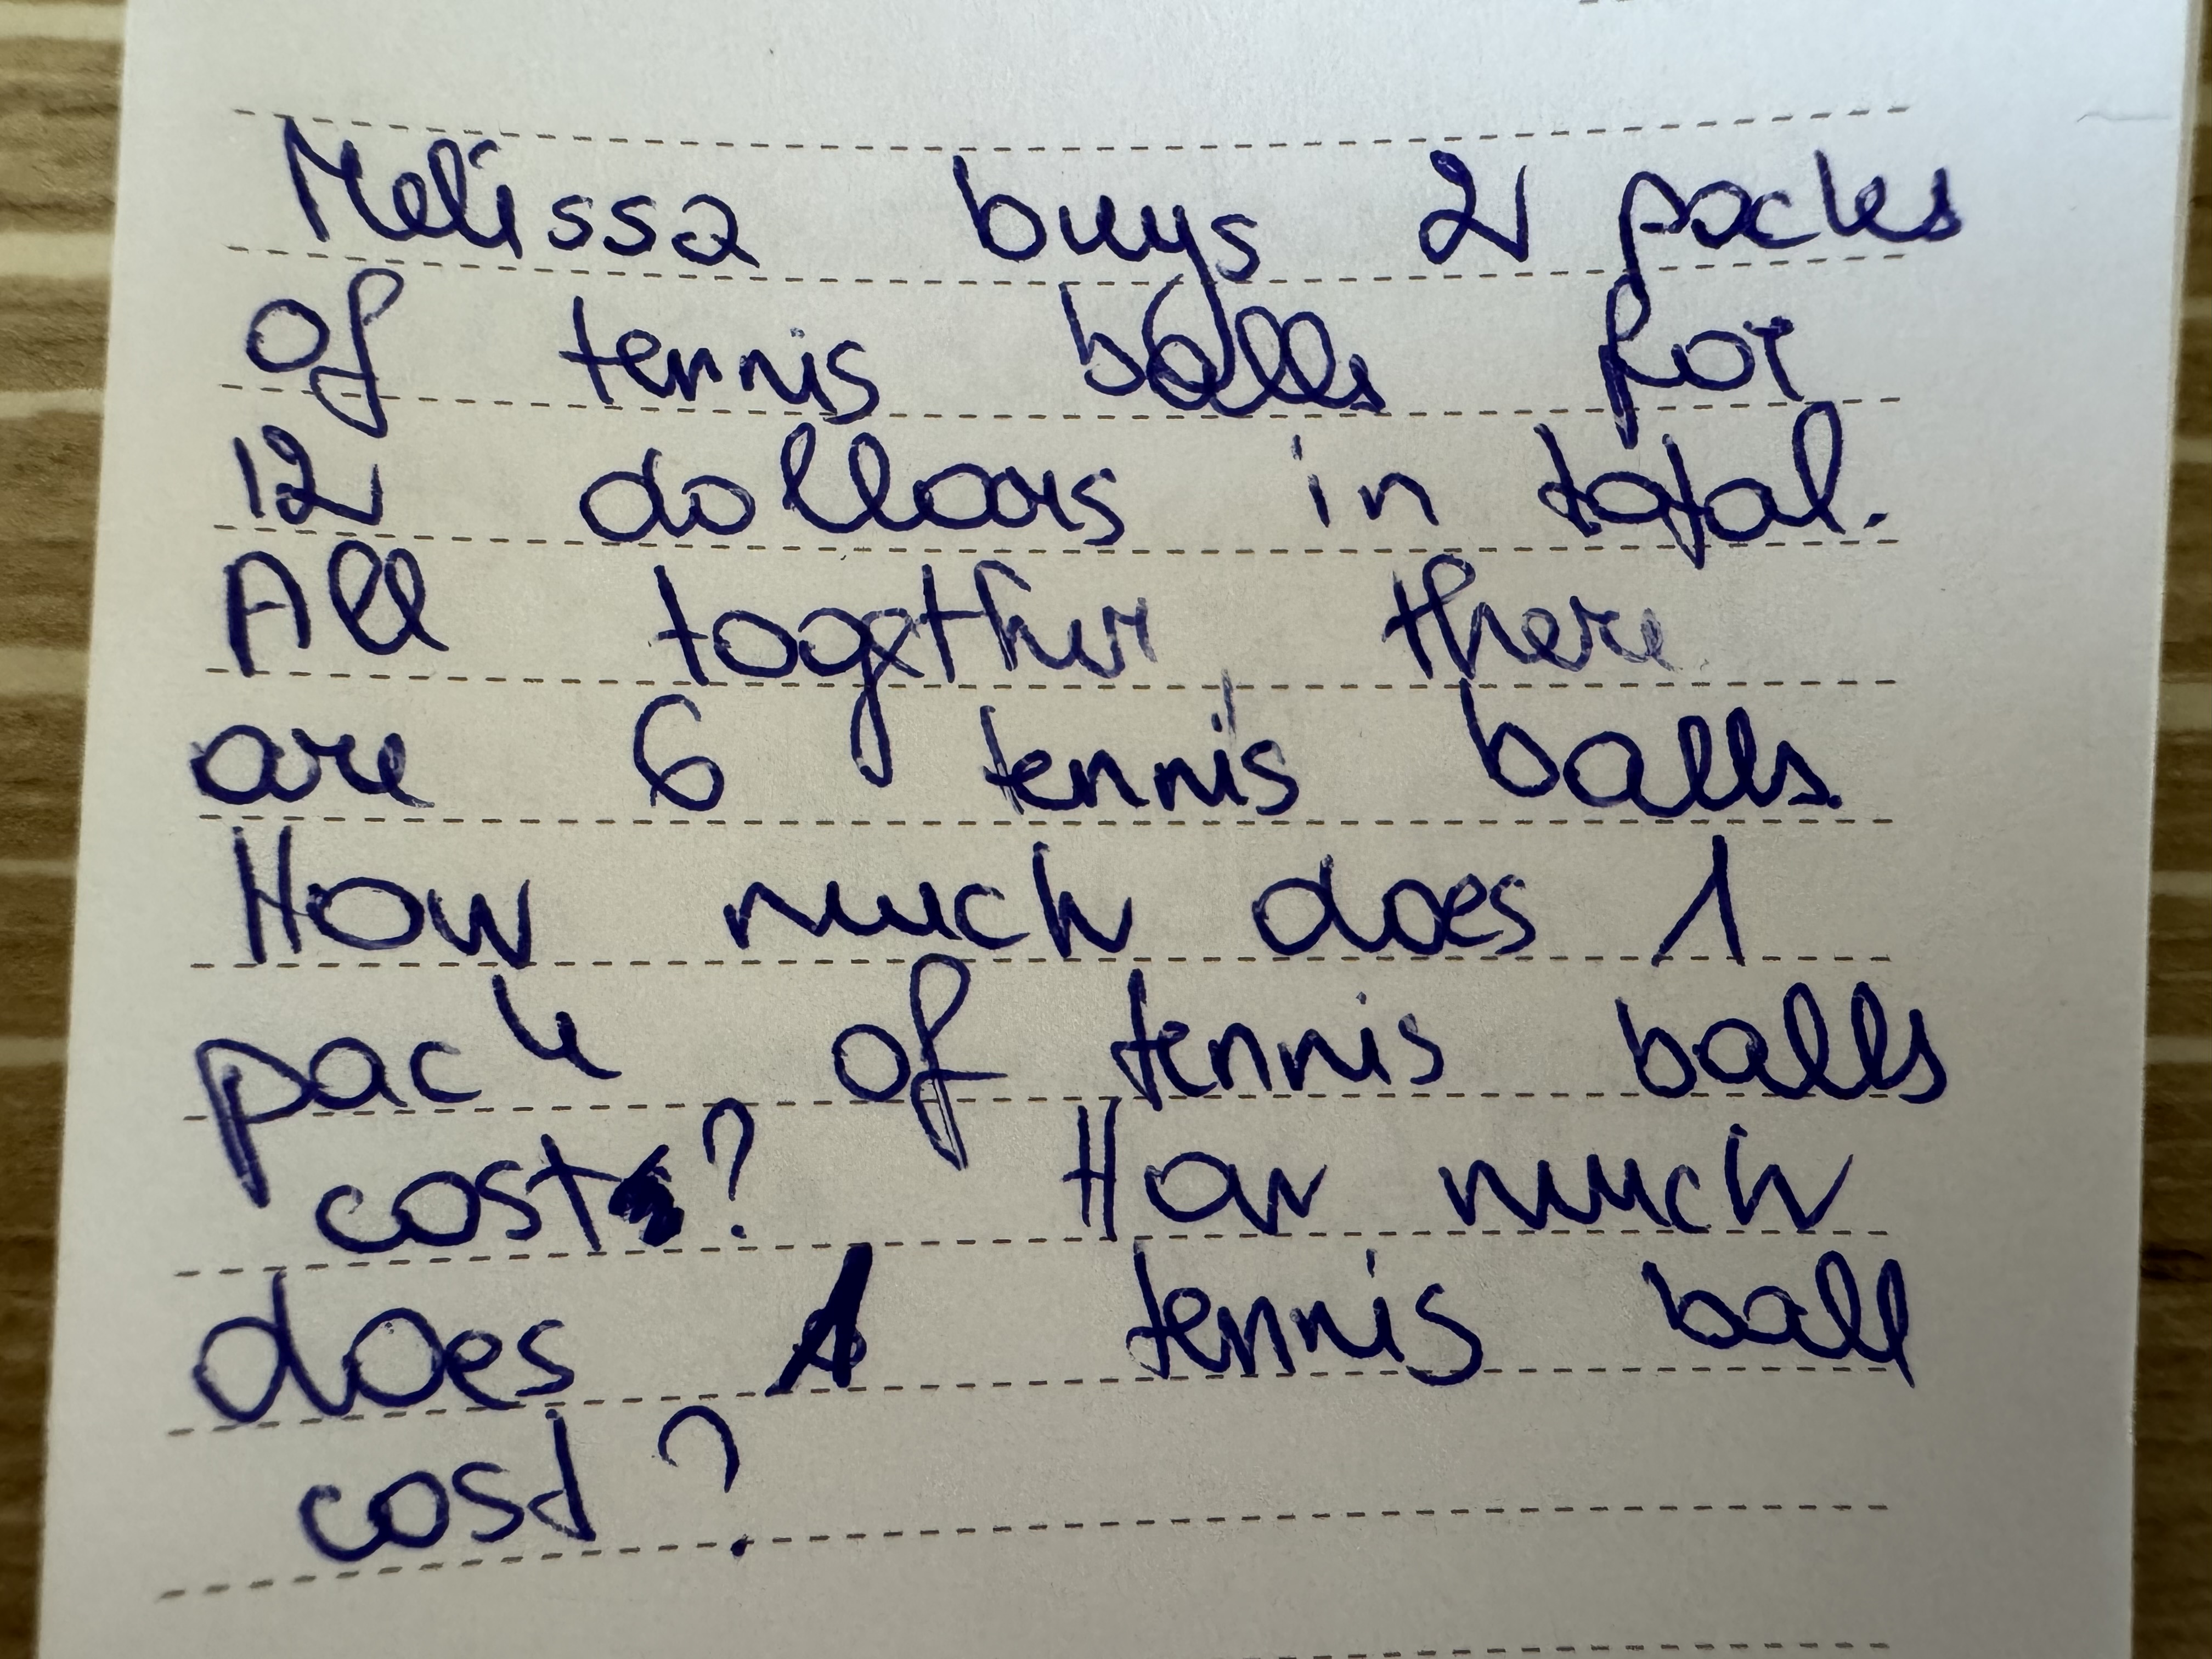 Melissa buys 2 packs
of tennis balls for
12 dollars in total.
All together there
are 6 tennis balls.
How much does 1
pack of tennis balls
cost? How much
does 1 tennis ball
cost?